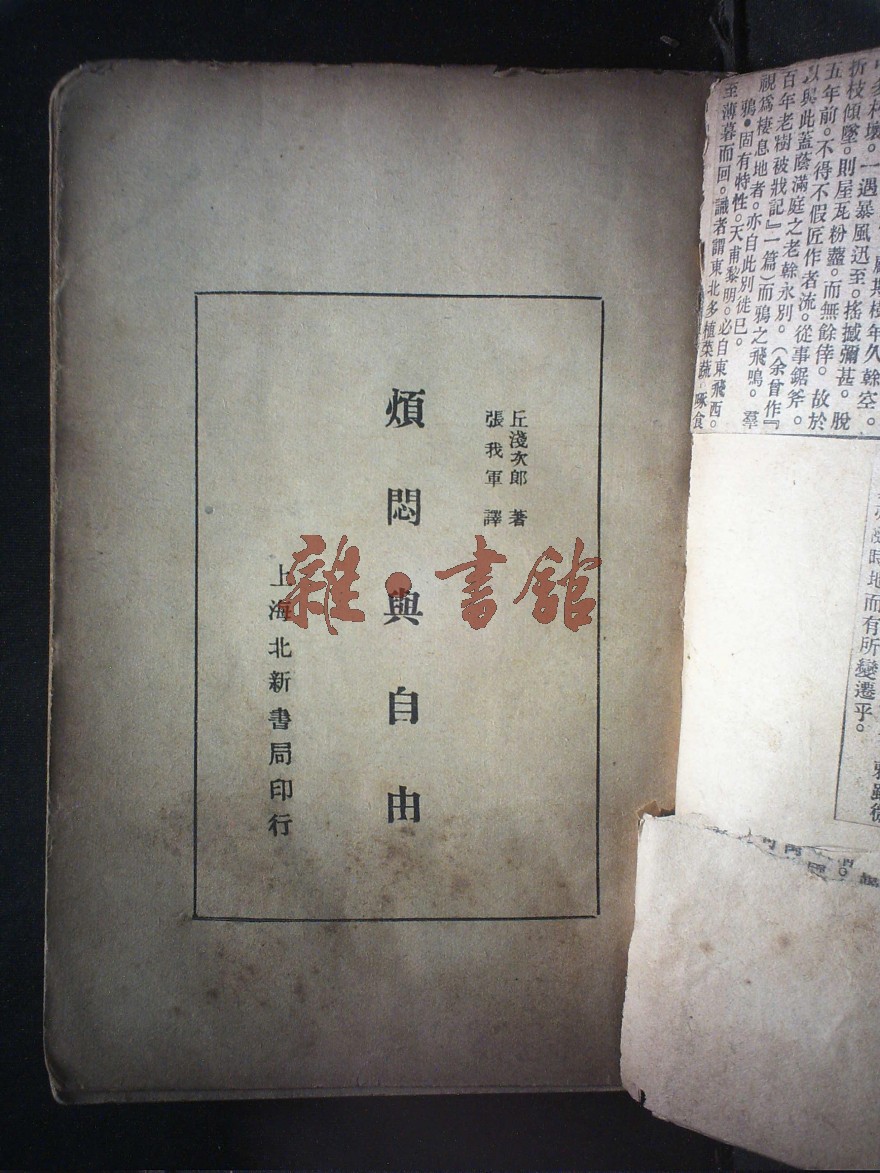 丘淺次郎 著
張我軍 譯
煩悶與自由
上海北新書局印行
雜·書館
折枝傾墜。則屋瓦粉虀。而無餘倖。故於
五年前。不得不假匠作者流。從事鋸斧。
以與此蓋蔭滿庭之老榦永別。(余曾作『
百年老樹被戕記』一篇)而鴉之飛鳴。羣
視爲棲息地者。亦自此別徙已。
鴉。固有特性。天甫黎明。必自東飛西。
至薄暮而回。識者謂東北多植菜蔬 啄食
時地而有所變遷乎。